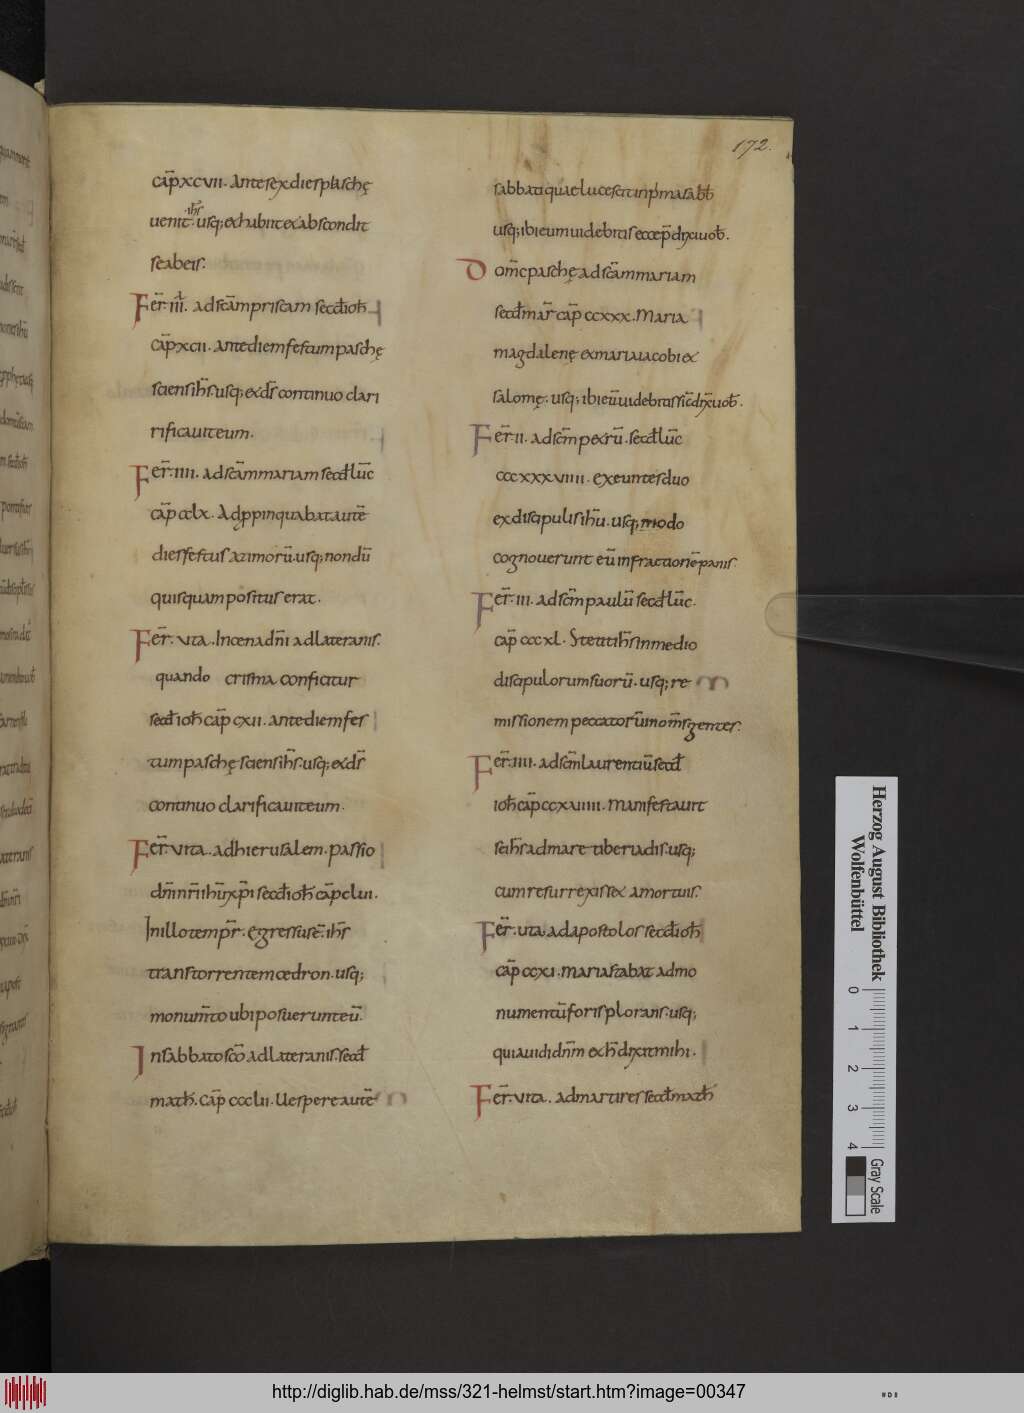 172.
cap̄ xcvii. Ante sex dies paschę
uenit ih̄s. usq; exhubiit & abscondit
se ab eis.
Fer̄. iii. ad sc̄am priscam sec̄d ioh̄
cap̄ xcii. ante diem festum paschę
sciens ih̄s. usq; & d̄s continuo clari
rificauit eum.
Fer̄. iiii. ad sc̄am mariam secd̄ luc̄
cap̄ cclx. Adp̱pinquabat autē
dies festus azimorū. usq; nondū
quisquam positus erat.
Fer̄. vta. In cena dn̄i ad lateranis.
quando crisma conficitur
secd̄ ioh̄ cap̄ cxii. ante diem fes
tum paschę sciens ih̄s. usq; & d̄s
continuo clarificauit eum.
Fer̄. vita. ad hierusalem. passio
dn̄i nr̄i ihū xp̄i secd̄ ioh̄ cap̄ clui.
In illo tempr̄. egressus ē. ih̄s
trans torrentem cedron. usq;
monum̄to ubi posuerunt eū.
In sabbato sc̄o ad lateranis. secd̄
math̄. cap̄ ccclii. Uespere autē
sabbati quae lucescit in p̄ma sab̄b
usq; ibi eum uidebitis ecce p̄dixi uob̄.
Dom̄c paschę ad sc̄am mariam
secd̄ mar̄ cap̄ ccxxx. Maria
magdalenę & maria iacobi &
salomę. usq; ibi eū uidebitis sic̄ dix̄ uob̄.
Fer̄. ii. ad sc̄m petrū. secd̄ luc̄
cccxxxviiii. exeuntes duo
ex discipulis ihū. usq; modo
cognouerunt eū in fractionē panis.
Fer̄. iii. ad sc̄m paulū secd̄ luc̄.
cap̄ cccxl. Stetit ih̄s in medio
discipulorum suorū. usq; re
missionem peccatorū in om̄s gentes.
Fer̄. iiii. ad sc̄m laurentiū secd̄
ioh̄ cap̄ ccxuiiii. Manifestauit
se ih̄s ad mare tiberiadis. usq;
cum resurrexisset a mortuis.
Fer̄. uta. ad apostolos secd̄ ioh̄
cap̄ ccxi. maria stabat ad mo
numentū foris plorans. usq;
quia uidi dn̄m & h̄ dixit mihi.
Fer̄. vita. ad martires secd̄ math̄
Herzog August Bibliothek
Wolfenbüttel
0 1 2 3 4
Gray Scale
http://diglib.hab.de/mss/321-helmst/start.htm?image=00347